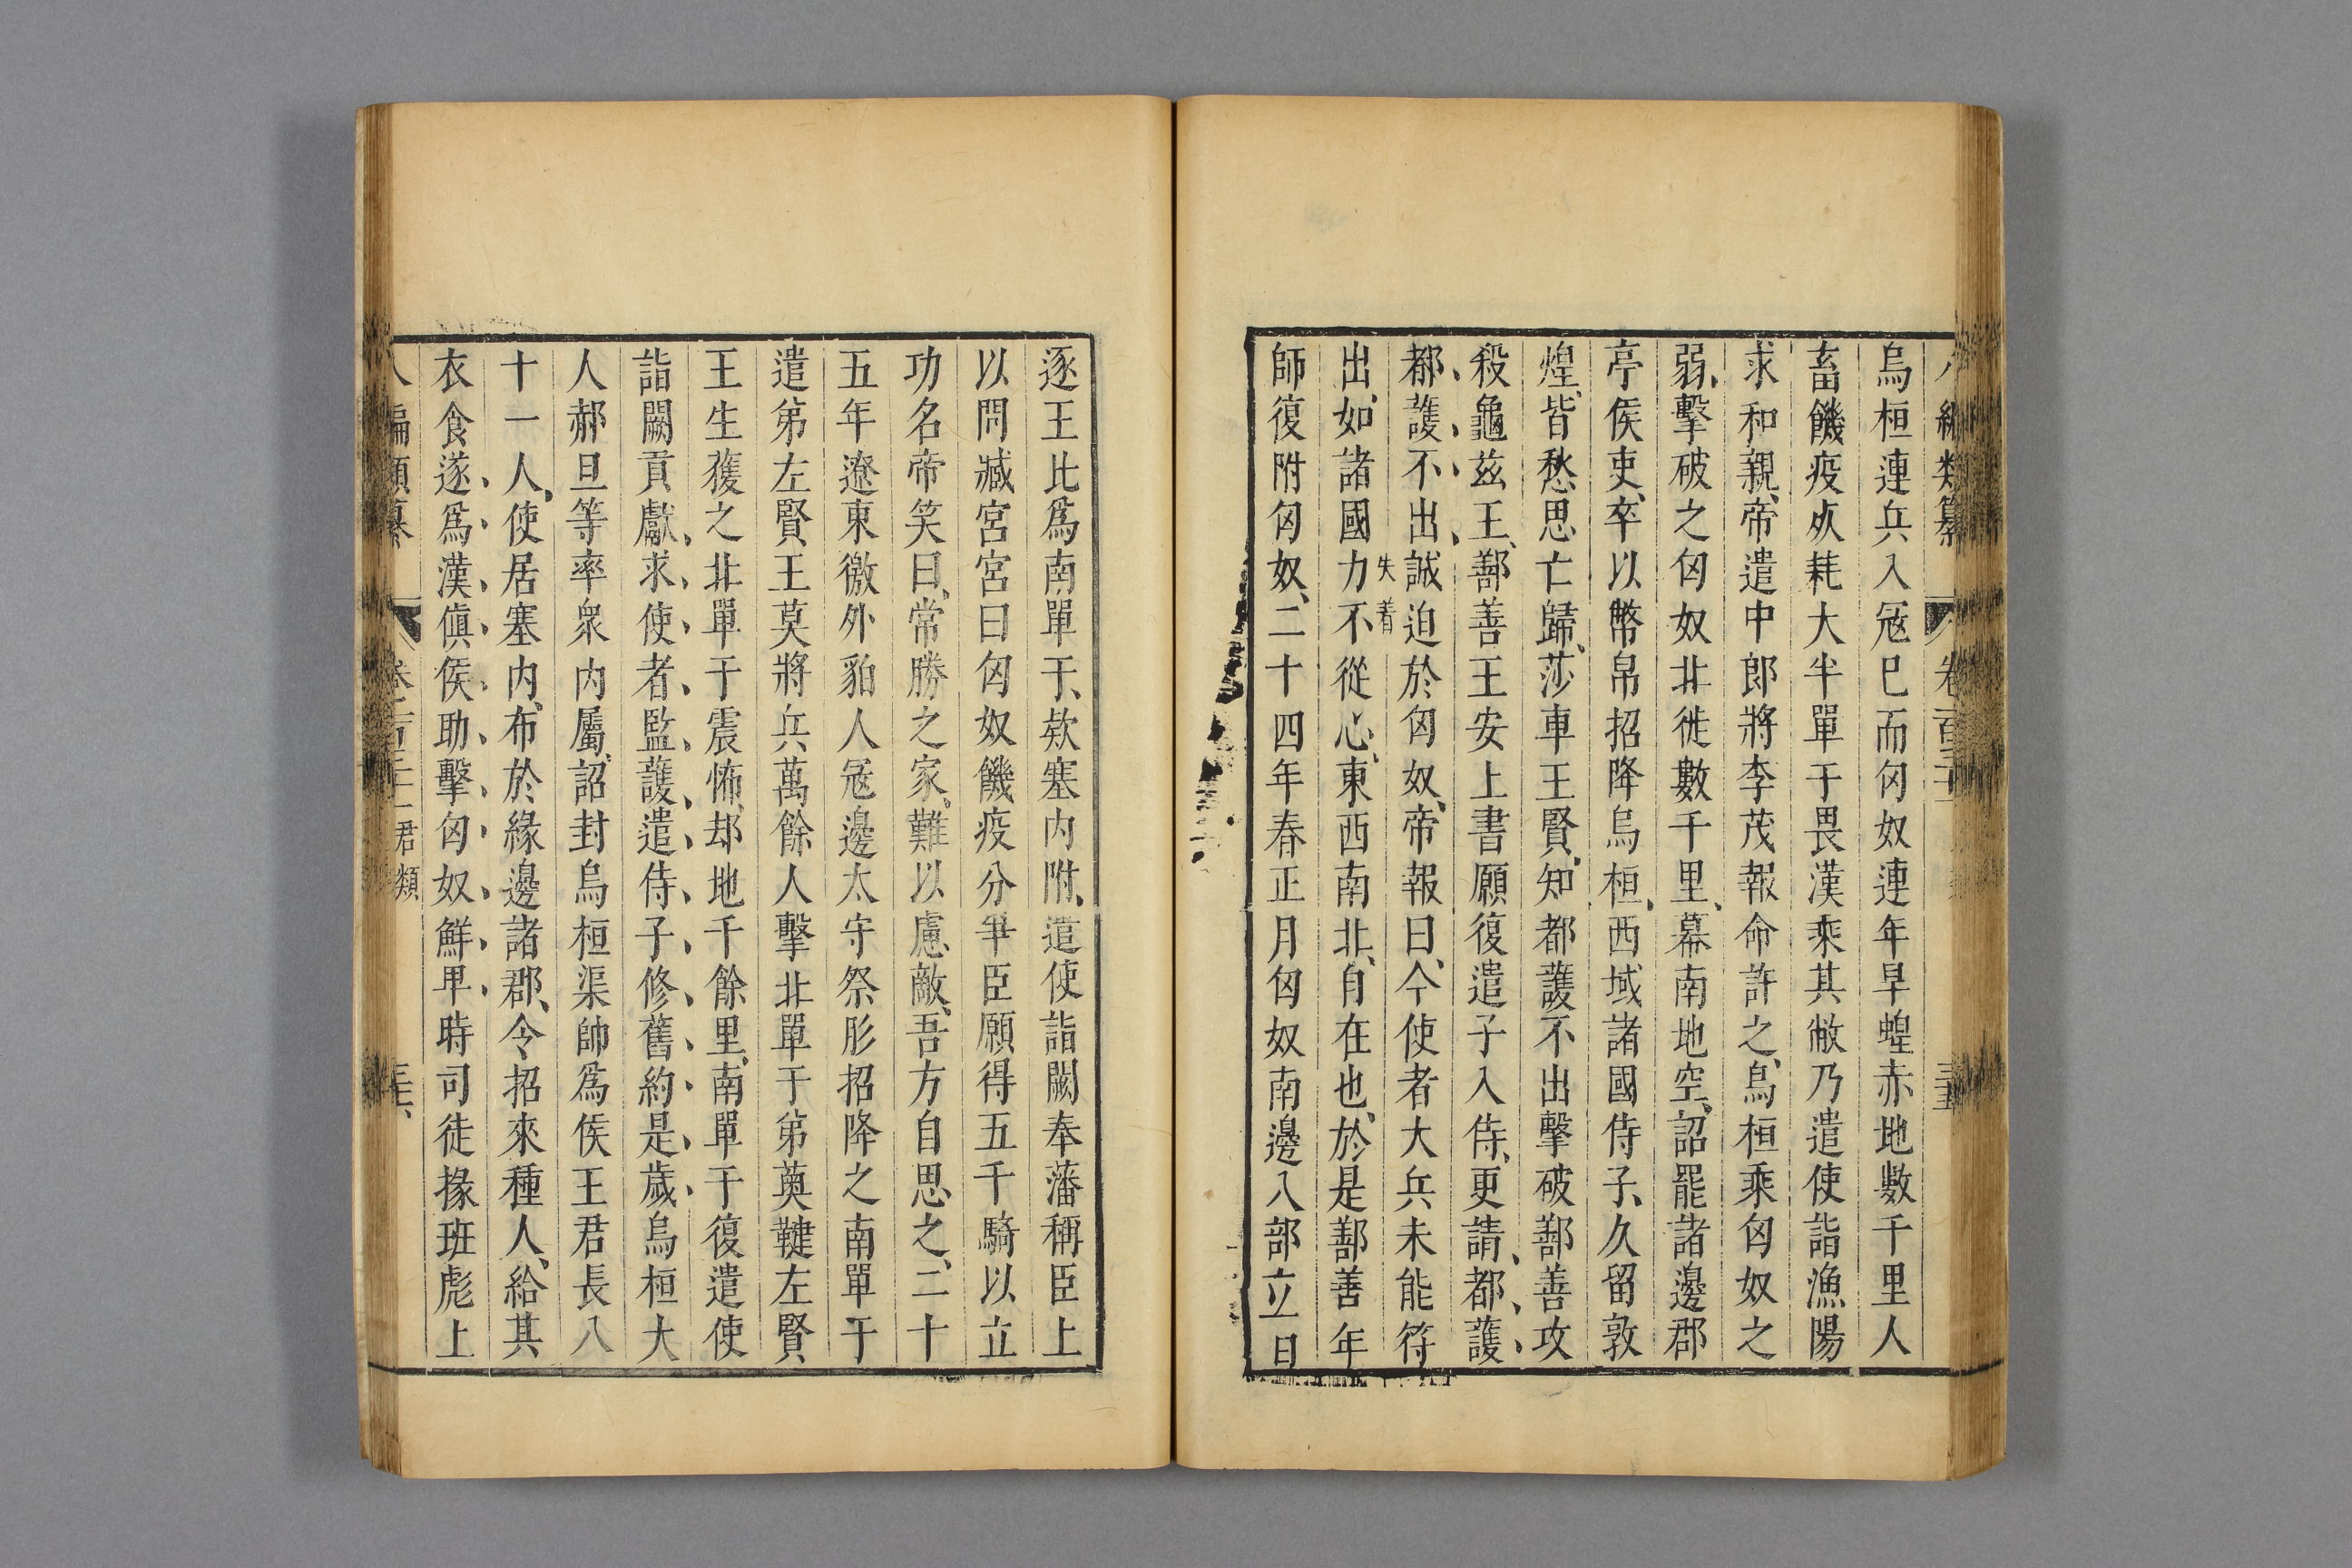 編類纂 卷一百三十 三十五
烏桓連兵入㓂巳而匈奴連年旱蝗赤地數千里人
畜饑疫㱦耗大半單于畏漢乘其敝乃遣使詣漁陽
求和親、帝遣中郎將李茂報命許之、烏桓乘匈奴之
弱、擊破之匈奴北徙數千里、幕南地空、詔罷諸邊郡
亭侯吏、卒以幣帛招降烏桓、西域諸國侍子、久留敦
煌、皆愁思亡歸、莎車王賢、知都護不出擊破鄯善攻
殺龜茲王、鄯善王安上書願復遣子入侍、更請、都、護、
都、護、不、出、誠迫於匈奴、帝報曰、今使者大兵未能符
失着
出、如諸國力不從心、東西南北、自在也、於是鄯善年
師復附匈奴、二十四年春正月匈奴南邊八部立日
逐王比爲南單于、欵塞内附、遣使詣闕奉藩稱臣上
以問臧宮宮曰匈奴饑疫分爭臣願得五千騎以立
功名帝笑曰、常勝之家、難以慮敵、吾方自思之、二十
五年遼東徼外貊人㓂邊太守祭肜招降之南單于
遣弟左賢王莫將兵萬餘人擊北單于弟薁鞬左賢
王生獲之北單于震怖、却地千餘里、南單于復遣使
詣闕貢獻、求、使、者、監、護、遣、侍、子、修、舊、約、是、歲、烏桓大
人郝旦等率衆内屬、詔封烏桓渠帥爲侯王君長八
十一人、使居塞内、布於緣邊諸郡、令招來種人、給其
衣食遂、爲、漢、偵、侯、助、擊、匈、奴、鮮、卑、時司徒掾班彪上
編類纂 卷之一百三十 君類 三十六